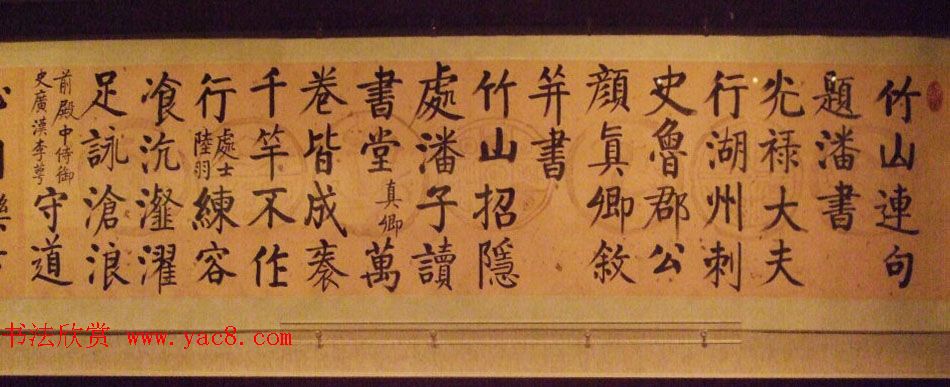 竹山連句
題潘書
光祿大夫
行湖州刺
史魯郡公
顏真卿敘
并書
竹山招隱
處潘子讀
書堂 真卿 萬
卷皆成袠
千竿不作
行 處士陸羽 練容
飡沆瀣濯
足詠滄浪
前殿中侍御史廣漢李萼 守道
书法欣赏 www.yac8.com